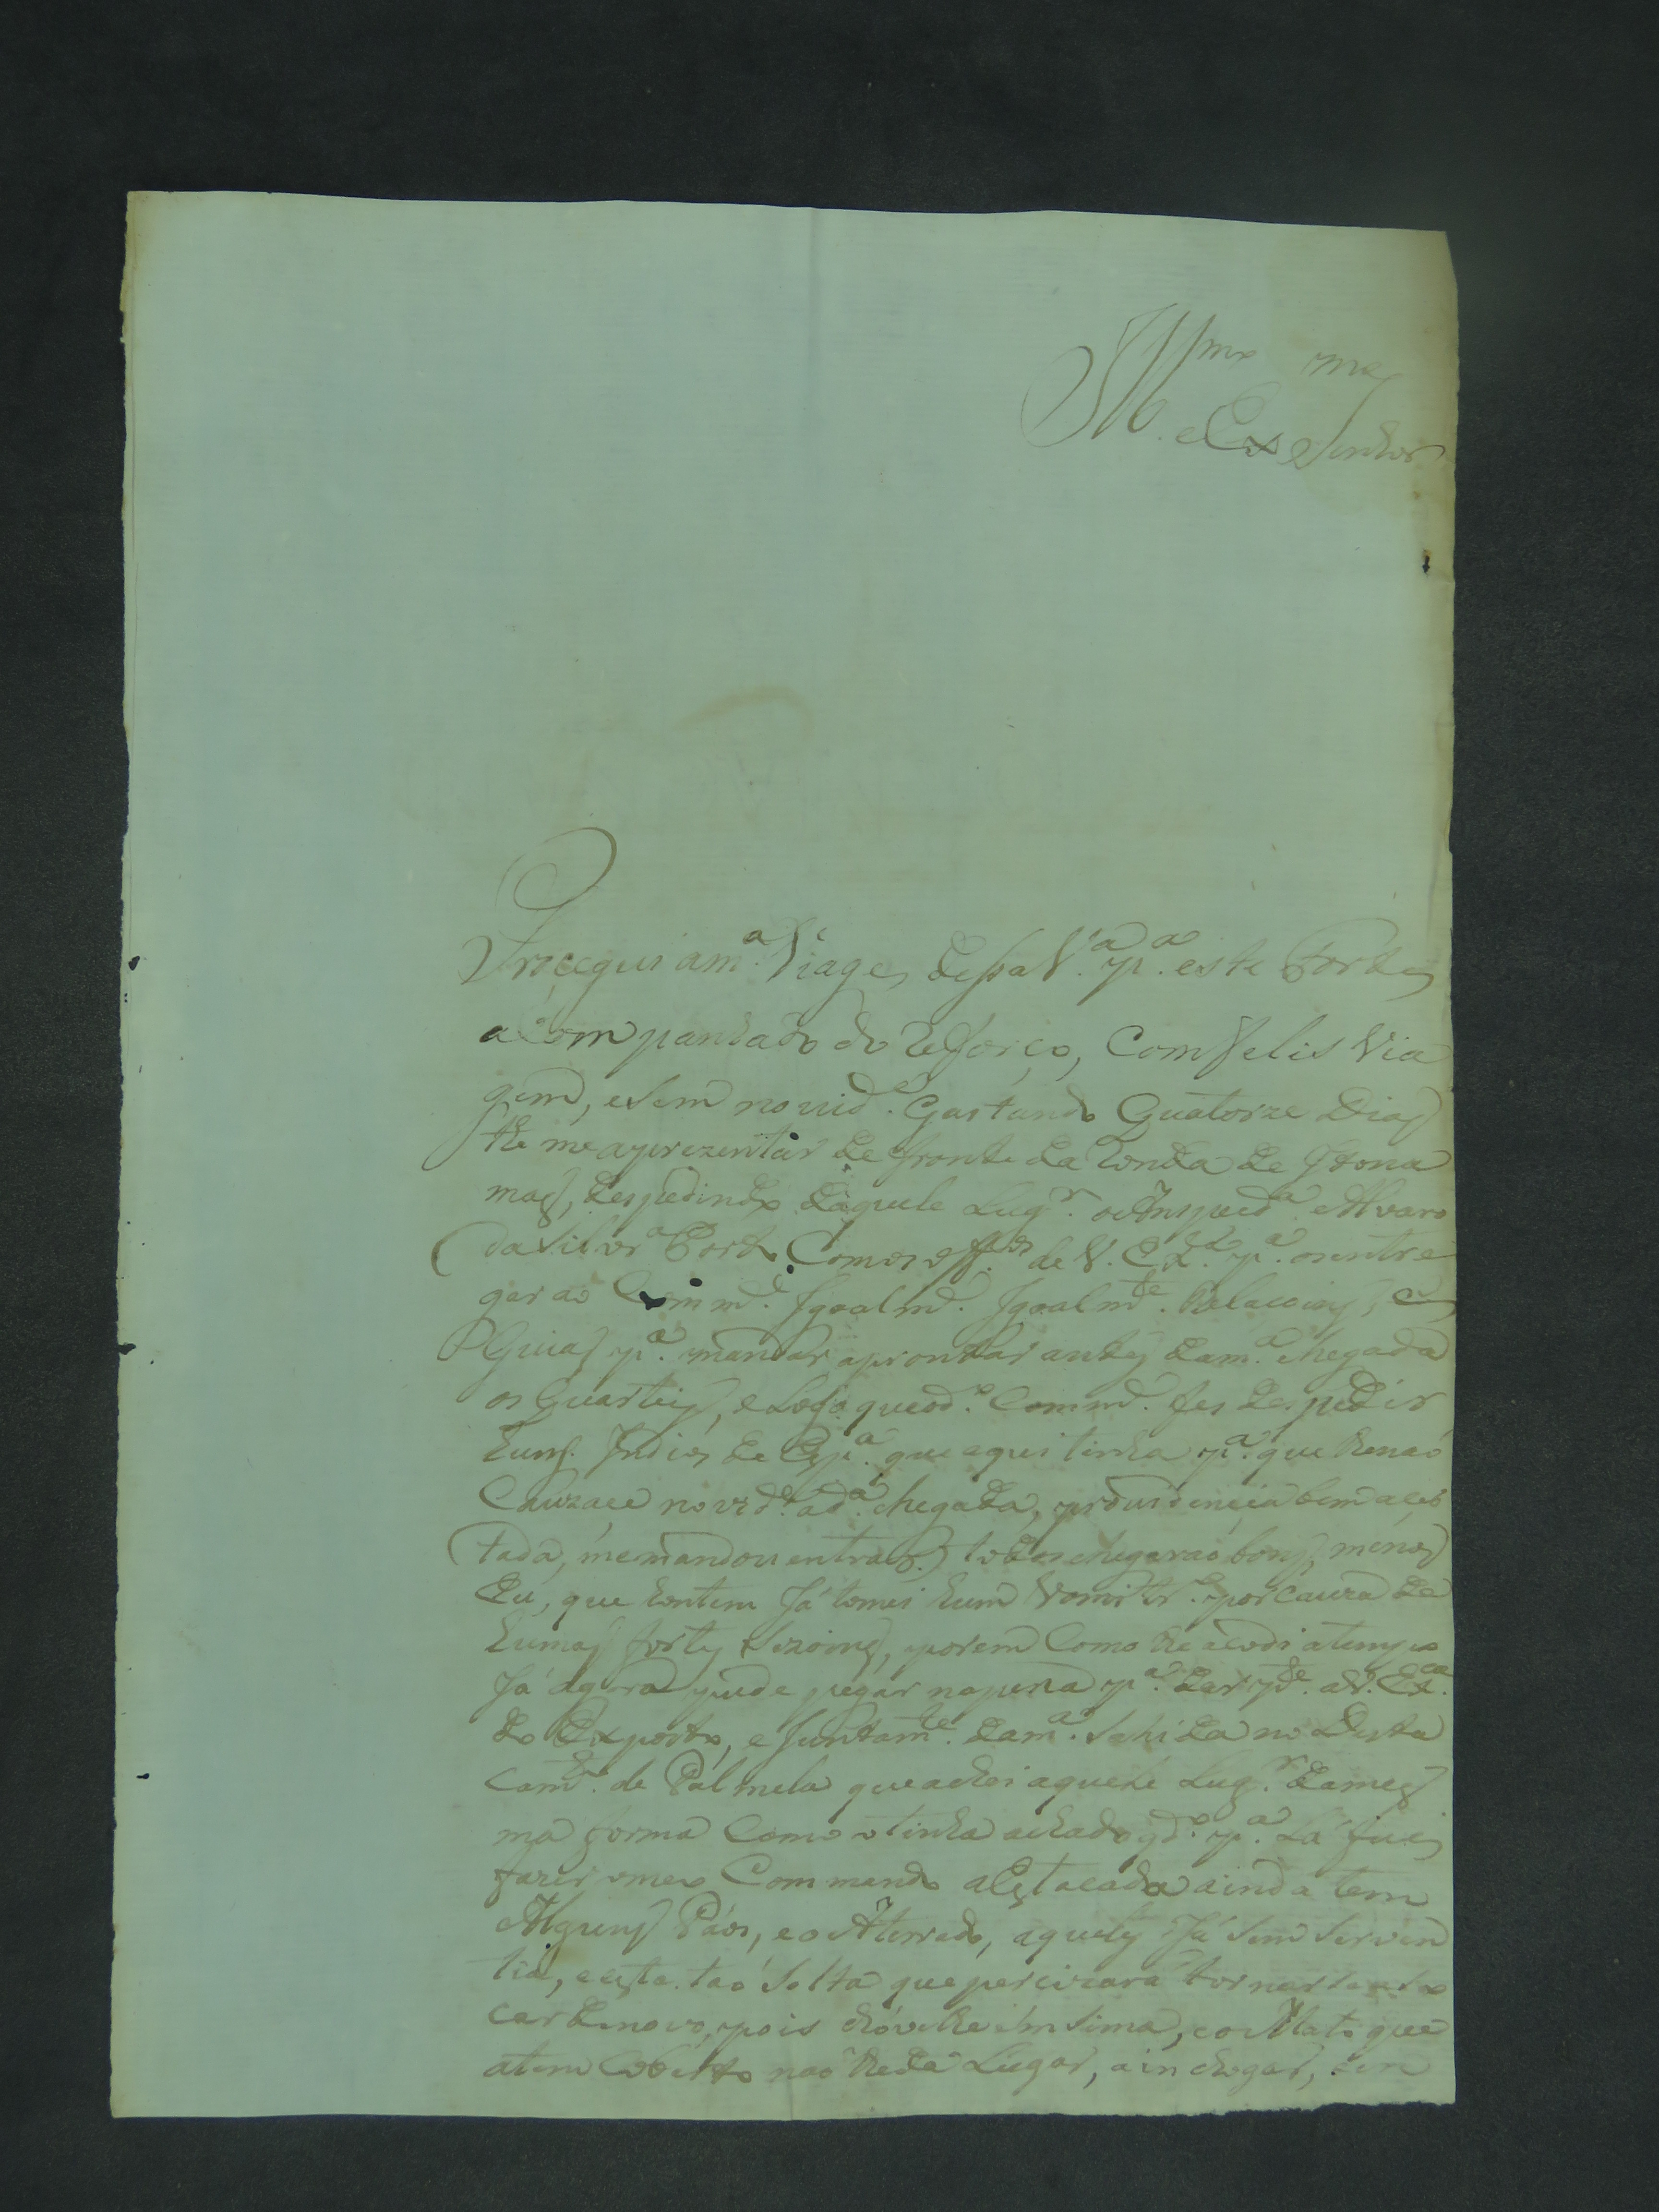 Ill.mo e Ex.mo Senhor
Proçegui a m.a Viage, dessa V.a p.a este Forte,
acompanhado do Reforço, Com felis Via
gem, e Sem novid.e Gastando Quatorze Dias
the me aprezentar de fronte da Ronda de Itona
mas, despedindo daquele Lug.r o Anspeç.a Alvaro
da Silvr.a Porto Com os off.os de V. Ex.a p.a os entre
gar ao Comm.e Igoalm.e Igoalm.te Relacoins, e
Guias p.a mandar aprontar antes da m.a chegada
os Quarteis, e Logo que o d.o Comm.e fes despedir
huns Indios de Esp.a que aqui tinha p.a que lhe naõ
Cauzace novid.e a d.a chegada, providencia bem acer
tada, me mandou entrar todos chegaraõ bons, menos
Eu, que hontem Já tomei hum Vomitr.o por Cauza de
humas fortes Sezoins, porem Como lhe acodi a tempo
Já agora pude pegar na pena p.a dar p.te a V. Ex.ca
do Exposto, e Juntam.te da m.a Sahida no Desta
cam.to de Palmela que achei aquele Lug.r da mes
ma forma Como o tinha achado qd.o p.a Lá fui
fazer o meu Commando a Estacada ainda tem
Alguns Páos, e o Aterrado, aqueles Já Sem Serven
tia, e este taõ Solta que percizará tornar se a so
car de novo, pois chóve lhe em Sima, e o Mato que
a tem Coberto naõ lhe dá Lugar, a inchogar, em